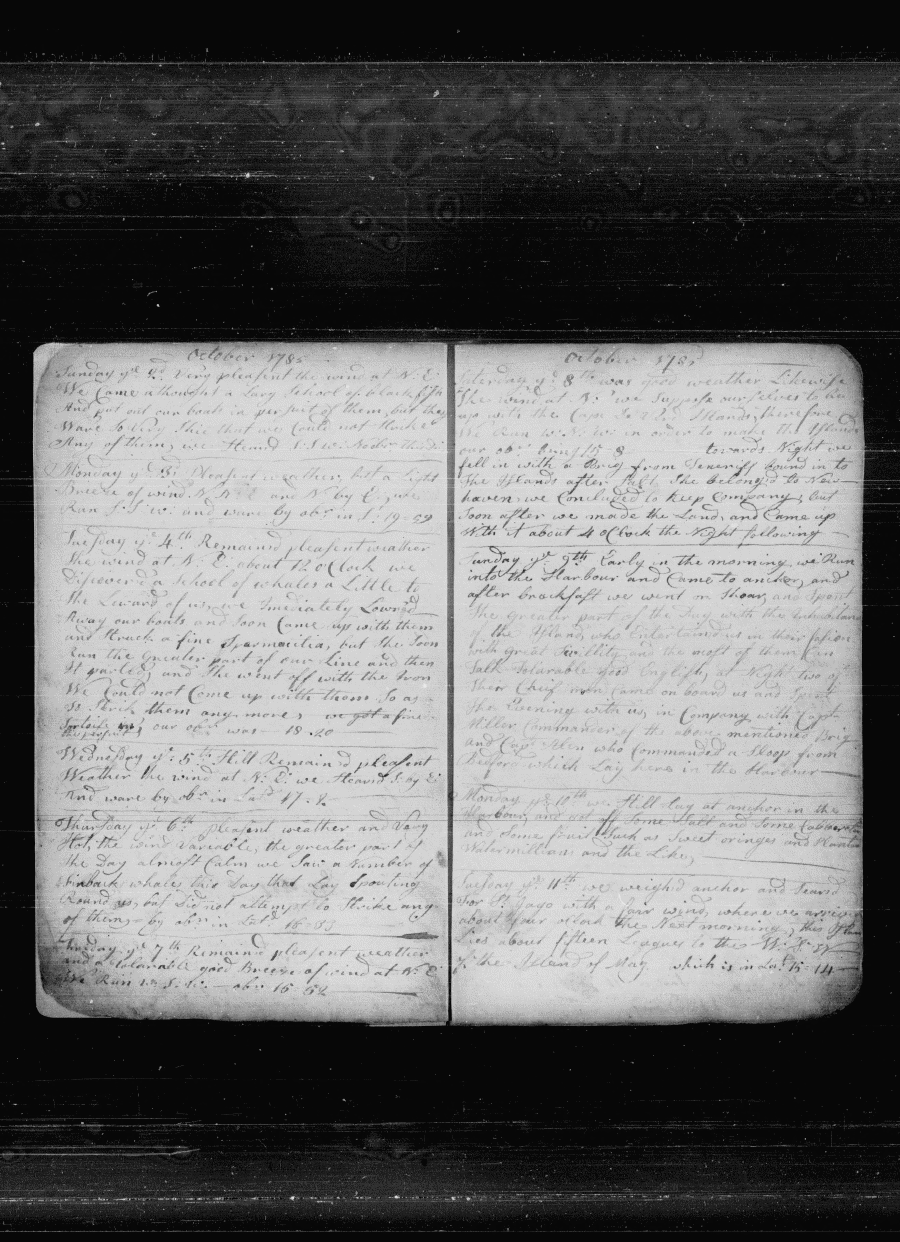 October 1785
Sunday ye 2d. Very pleasent the wind at N: E:
We Came athought a Larg School of black fish
And got out our boats in persut of them, but they
Ware So Very Shie that we Could not Strike
Any of them, we Heard S: S: W:
Monday ye 3d: Pleasent weather, but a Light
Breeze of wind N. N: E and N by E, we
Run S: S: W: and ware by obsn in Lt: 19=59
Tuesday ye 4th Remaind pleasent weather
The wind at N: E: about 12 oClock we
Discovered a School of whales a Little to
The Leward of us, we Imediately Lowred
Away our boats and Soon Came up with them
and Struck a fine Sparmacitia, but She Soon
Run the Greater part of our Line and then
It parted, and She went off with the Iron
We Could not Come up with them So as
to Strik them any more, we got a fine
our obsn was — 18=20
Wednesday ye: 5th Still Remain'd pleasent
Weather the wind at N: E: we Heard S. by E:
And ware by obsn in Latd 17=
Thursday ye 6th pleasent weather and Very
Hot, the wind Variable, the greater part of
The Day almost Calm we Saw a Number of
finback whales this Day that Lay Spouting
Round us, but Did not attempt to Strike any
of them — by obsn in Latd 16=
Friday ye 7th Remain'd pleasent weather
and a tolarable good Breeze of wind at N: E
We Run S: S: — obsn 15=52
October 1785
Saterday ye 8th was good weather Likewise
The wind at N: we Suppose ourselves to be
up with the Cape De Verd Islands, therefore
We Run W: N: W: in order to make the Islands
our obsn 15 8 towards Night we
fell in with a Brig from Teneriff bound in to
the Islands after Salt. She belong'd to New
haven, we Concluded to keep Company, but
Soon after we made the Land, and Came up
With it about 4 oClock the Night following
Sunday ye 9th Early in the morning we Run
into the Harbour and Came to anchor, and
after breakfast we went on Shoar, and Spent
The greater part of the Day with the Inhabitan
of the Island, who Entertained us in their fasion
with great Sivillity and the most of them Can
Talk Tolarable good English, at Night two of
Their Cheif men Came on board us and Spent
The Evening with us, in Company with Captn
Miller Commander of the above mentioned Brig
and Capt Allen who Commanded a Sloop from
Bedford which Lay here in the Harbour
Monday ye 10th we Still Lay at anchor in the
Harbour, and got off Some Salt and Some
and Some fruit Such as Sweet oringes and
Watermillians and the Like,
Tuesday ye 11th we weigh'd anchor and Steard
For St Jago with a fair wind, where we arrived
about four oClock the Next morning, this Island
Lies about fifteen Leagues to the W: S: W
of the Island of May which is in Latd 15=14